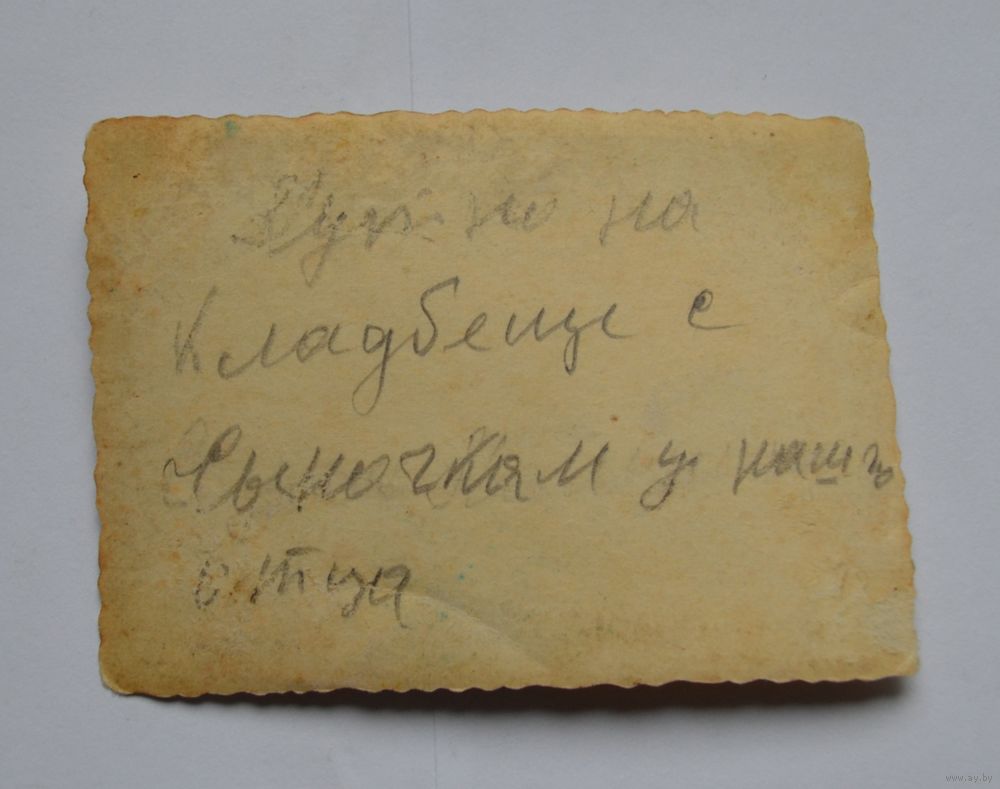 на
Кладбеще с
Сыночкам у наш
отца
www.ay.by